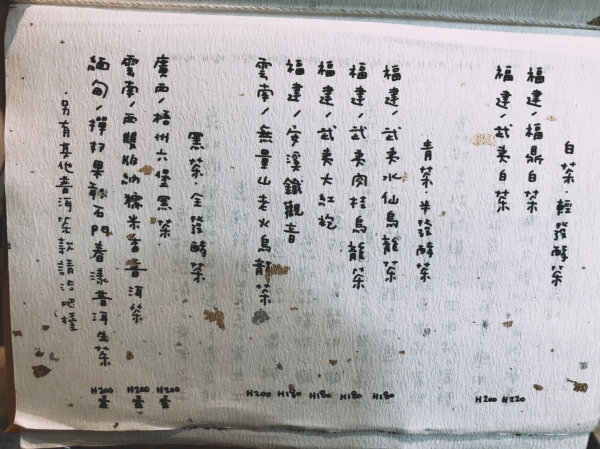 白茶·輕發酵茶
福建/福鼎白茶 H220
福建/武夷白茶 H200
青茶·半發酵茶
福建/武夷水仙烏龍茶 H180
福建/武夷肉桂烏龍茶 H180
福建/武夷大紅袍 H180
福建/安溪鐵觀音 H180
雲南/無量山老火烏龍茶 H200
黑茶·全發酵茶
廣西/梧州六堡黑茶 H200 壺
雲南/西雙版納糯米香普洱茶 H200 壺
緬甸/撣邦果敢石門春漾普洱生茶 H200 壺
·另有其他普洱茶款請洽吧檯